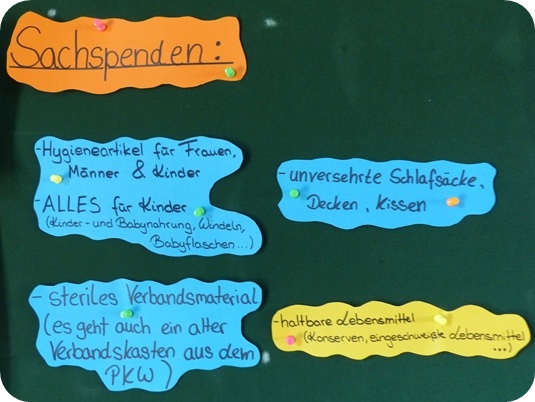 Sachspenden:
-Hygieneartikel für Frauen,
Männer & Kinder
-ALLES für Kinder
(Kinder- und Babynahrung, Windeln,
Babyflaschen...)
- unversehrte Schlafsäcke,
Decken, Kissen
- steriles Verbandsmaterial
(es geht auch ein alter
Verbandskasten aus dem
PKW)
-haltbare Lebensmittel
(Konserven, eingeschweißte Lebensmittel
...)